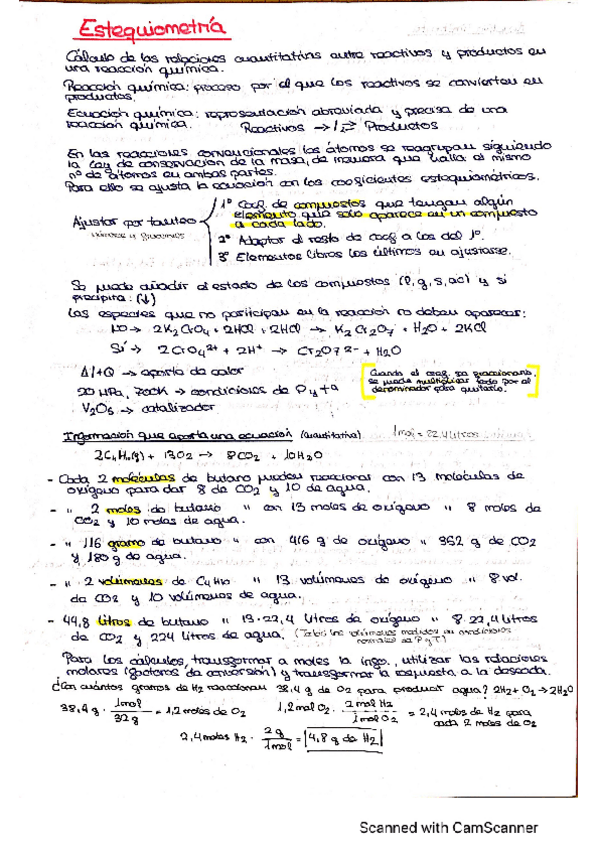 Estequiometría
Cálculo de las relaciones cuantitativas entre reactivos y productos en
una reacción química.
Reacción química: proceso por el que los reactivos se convierten en
productos.
Ecuación química: representación abreviada y precisa de una
reacción química. Reactivos →/⇄ Productos
En las reacciones convencionales los átomos se reagrupan siguiendo
la Ley de conservación de la masa, de manera que halla el mismo
nº de átomos en ambas partes.
Para ello se ajusta la ecuación con los coeficientes estequiométricos.
1º Coef. de compuestos que tengan algún
elemento que solo aparece en un compuesto
a cada lado.
Ajustar por tanteo
2º Adaptar el resto de coef a los del 1º.
3º Elementos libres los últimos en ajustarse.
Se puede añadir el estado de los compuestos (l, g, s, ac) y si
precipita: (↓)
Las especies que no participan en la reacción no deben aparecer:
No → 2K2CrO4 + 2HCl + 2HCl → K2Cr2O7 + H2O + 2KCl
Sí → 2CrO4 2+ + 2H+ → Cr2O7 2- + H2O
Δ/+Q → aporte de calor
20 MPa, 700K → condiciones de P y ta
V2O5 → catalizador
Cuando el coef. sea fraccionario,
se puede multiplicar todo por el
denominador para quitarlo.
Información que aporta una ecuación (cuantitativa) 1mol = 22,4 litros
2C4H10(g) + 13O2 → 8CO2 + 10H2O
- Cada 2 moléculas de butano pueden reaccionar con 13 moléculas de
oxígeno para dar 8 de CO2 y 10 de agua.
- " 2 moles de butano " con 13 moles de oxígeno " 8 moles de
CO2 y 10 moles de agua.
- " 116 gramo de butano " con 416 g de oxígeno " 352 g de CO2
y 180 g de agua.
- " 2 volúmenes de C4H10 " 13 volúmenes de oxígeno " 8 vol.
de CO2 y 10 volúmenes de agua.
- 44,8 litros de butano " 13·22,4 litros de oxígeno " 8·22,4 litros
de CO2 y 224 litros de agua. (Todos los volúmenes medidos en condiciones
normales de P y T)
Para los cálculos, transformar a moles la info., utilizar las relaciones
molares (factores de conversión) y transformar la respuesta a la deseada.
¿Con cuántos gramos de H2 reaccionan 38,4 g de O2 para producir agua? 2H2 + O2 → 2H2O
38,4 g · 1mol/32g = 1,2 moles de O2 1,2 mol O2 · 2mol H2/1mol O2 = 2,4 moles de H2 para
cada 2 moles de O2
2,4 moles H2 · 2g/1mol = 4,8 g de H2
Scanned with CamScanner